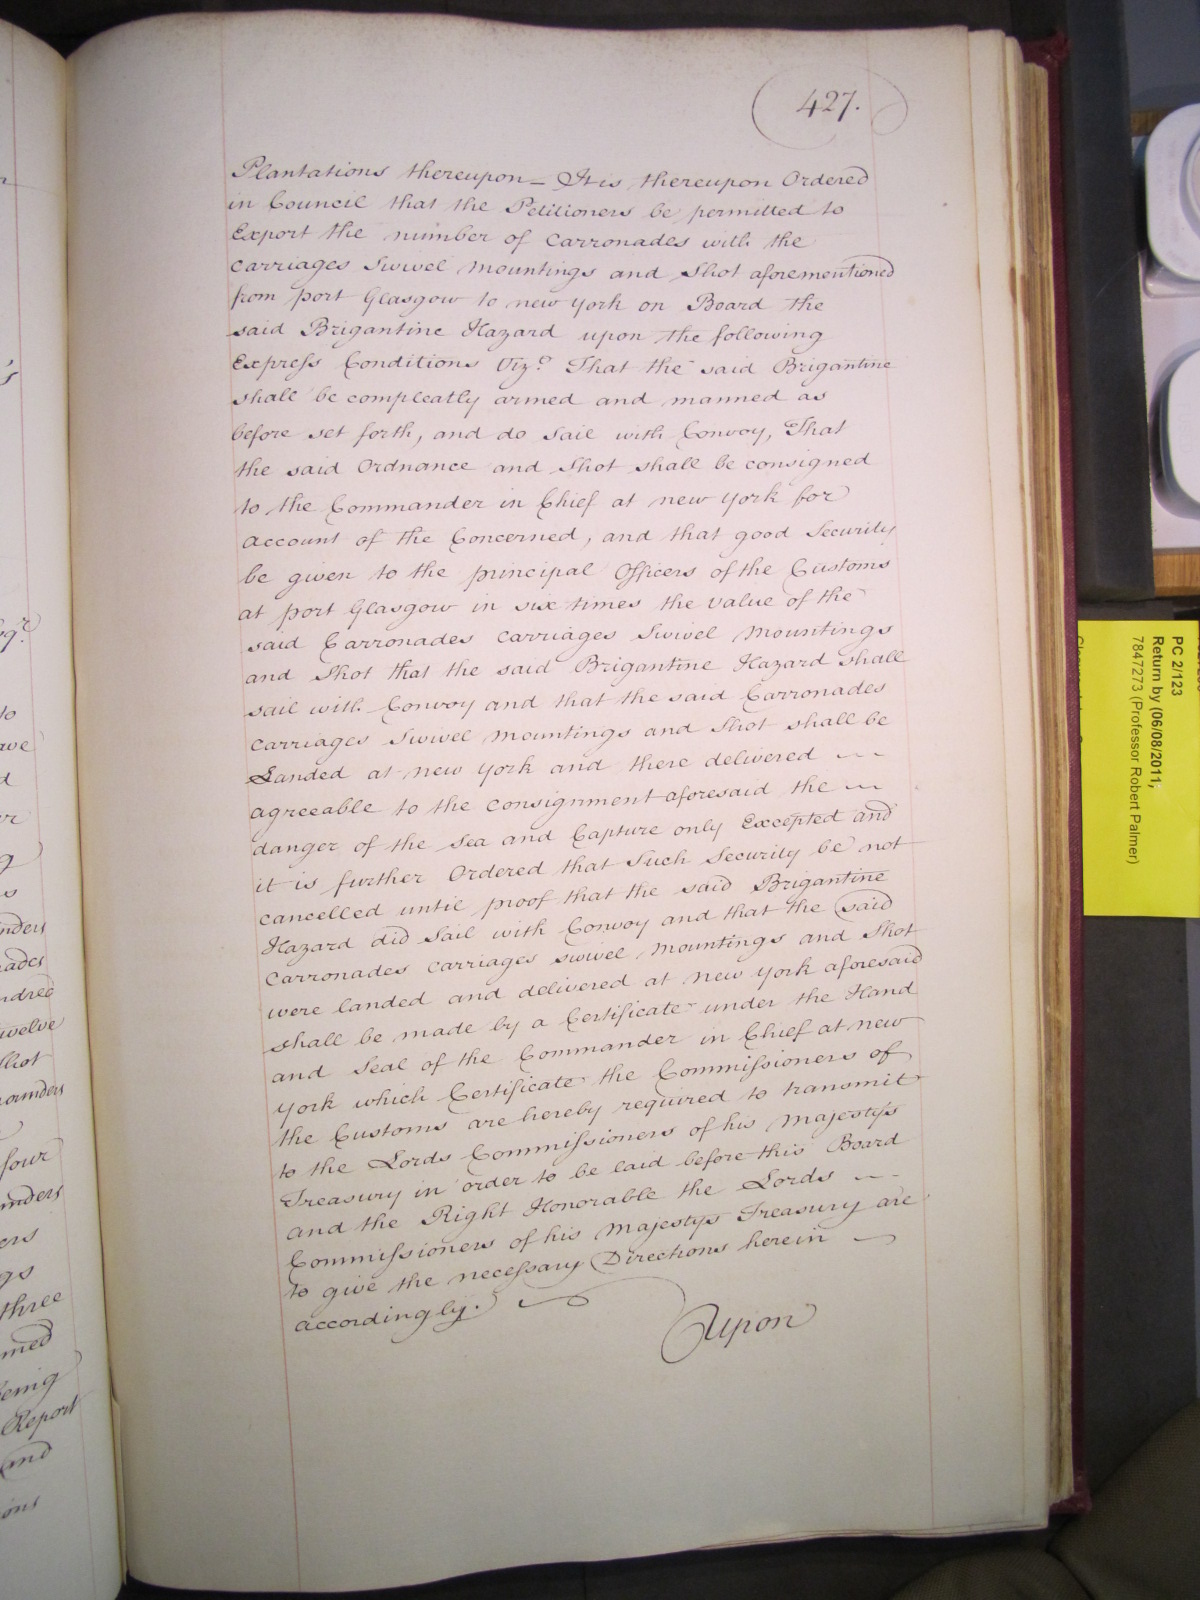 427.
Plantations thereupon – It is thereupon Ordered
in Council that the Petitioners be permitted to
Export the number of Carronades with the
Carriages Swivel Mountings and Shot aforementioned
from port Glasgow to new york on Board the
said Brigantine Hazard upon the following
Express Conditions Vizt. That the said Brigantine
shall be compleatly armed and manned as
before set forth, and do Sail with Convoy, That
the said Ordnance and Shot shall be consigned
to the Commander in Chief at new york for
account of the Concerned, and that good Security
be given to the principal Officers of the Customs
at port Glasgow in six times the value of the
said Carronades Carriages Swivel Mountings
and Shot that the said Brigantine Hazard shall
sail with Convoy and that the said Carronades
Carriages Swivel Mountings and Shot shall be
Landed at new york and there delivered
agreeable to the Consignment aforesaid the
danger of the Sea and Capture only Excepted and
it is further Ordered that Such Security be not
cancelled until proof that the said Brigantine
Hazard did Sail with Convoy and that the said
Carronades Carriages swivel Mountings and Shot
were landed and delivered at new york aforesaid
shall be made by a Certificate under the Hand
and Seal of the Commander in Chief at new
york which Certificate the Commissioners of
the Customs are hereby required to transmit
to the Lords Commissioners of his Majestys
Treasury in order to be laid before this Board
and the Right Honorable the Lords
Commissioners of his Majestys Treasury are
to give the necessary Directions herein
accordingly.
Upon
PC 2/123
Return by (06/08/2011;
7847273 (Professor Robert Palmer)
to
d
s
nders
ades
ndred
twelve
Shot
pounders
four
unders
ers
gs
three
med
being
Report
and
ions